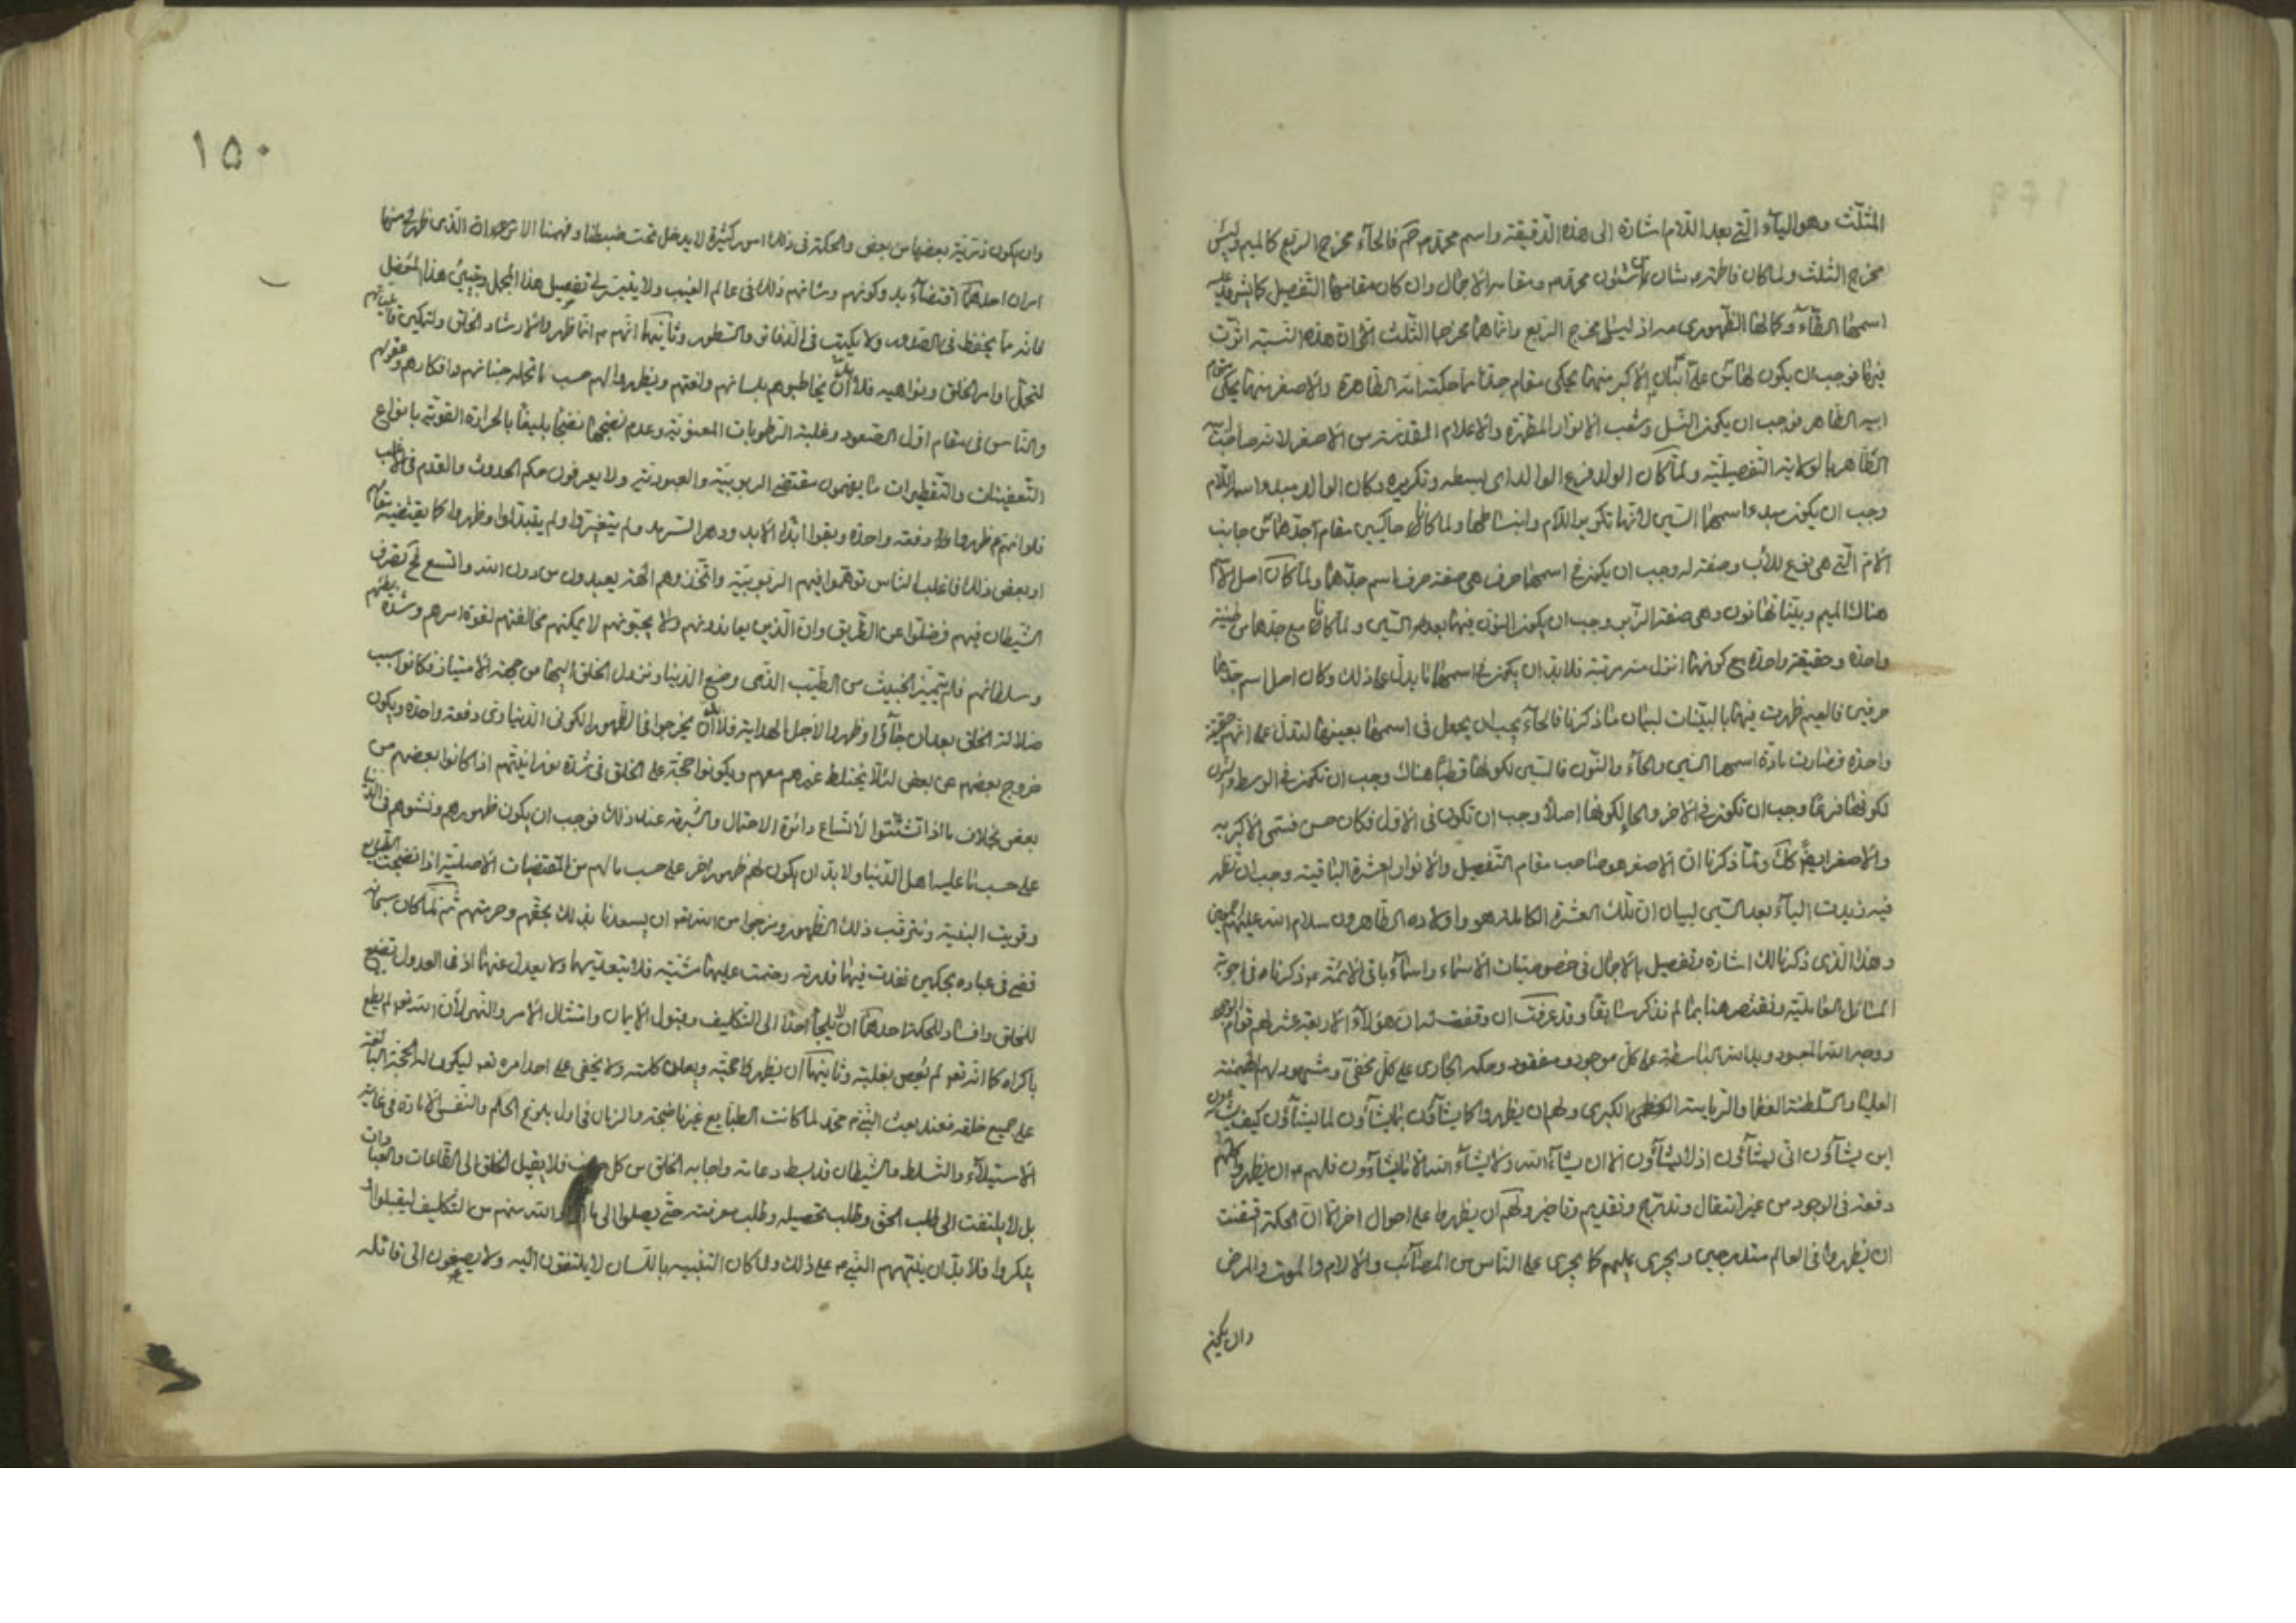 المثلّث وهو الياء الّتي بعد اللّام اشارة الى هذه الدّقيقة واسم محمّد ص فالحاء مخرج الربع كالميم وليس
مخرج الثلث ولما كان فاطمة شان من شئون محمّد ص ومقامه الاجمال وان كان مقامها التّفصيل كا يشير عليه
اسمها الطّاء وكالها الظّهوري اذ ليس مخرج الربع وانّما هما مخرجا الثّلث هذه النّسبة اثّرت
فيها فوجب ان يكون لها على الأكبر منهما يحكى مقام جدّها حكته امّه الطّاهرة والاصغر منهما يحكى مقام
ابيه الطّاهر فوجب ان يكون النّسل وشعب الانوار المطهّرة والاعلام المقدّسة من الاصغر لانّه صاحب ابيه
الظّاهر بالولاية التّفصيليّة ولمّا كان الولد فرع الوالد اى بسطه وتكريره وكان الوالد مبدء اسمه اللّام
وجب ان يكون مبدء اسمها السّين لانّها تكرير اللّام وانبساطها ولما كانا حاكيين مقام جدّهما من جانب
الامّ الّتي هي فرع للأب وصفة له وجب ان يكون في اسمهما حرف هى صفة حرف اسم جدّهما ولمّا كان اصل الاسم
هناك الميم وبيّناتها نون وهي صفة الزّبر وجب ان يكون النّون فيهما بعد السّين ولمّا كانا مع جدّهما من طينة
واحدة وحقيقة واحدة مع كونهما انزل منه مرتبة فلابدّ ان يكون في اسمهما ما يدلّ على ذلك وكان اصل اسم جدّهما
حرفين فالميم ظهرت فيهما بالبيّنات لبيان ما ذكرنا فالحاء يجب ان يجعل فى اسمهما بعينها لتدلّ على انّهم حقيقة
واحدة فصارت مادّة اسمهما السّين والحاء والنّون فالسّين لكونها قطبا هناك وجب ان تكون في الوسط والنّون
لكونها فرعا وجب ان تكون في الاخر والحاء لكونها اصلا وجب ان تكون فى الاوّل فكان حسن فسمّى الاكبر به
والاصغر ايضا كك ولمّا ذكرنا انّ الاصغر هو صاحب مقام التّفصيل والانوار العشرة الباقية وجب ان تظهر
فيه زيدت الياء بعد السّين لبيان ان تلك العشرة الكاملة هو واولاده الطّاهرون سلام الله عليهم اجمعين
وهذا الّذي ذكرنا لك اشارة وتفصيل بالاجمال فى خصوصيّات الاسماء واسماء باقى الائمّة ع وذكرناه فى اجوبة
المسائل العامليّة ونقتصر هنا بما لم نذكر سابقا وقد عرفت ان وقفت انّ هؤلاء الاربعة عشر لهم قوام الوجود
ووجه الله المعبود ويد الله الباسطة على كلّ موجود ومفقود وحكمه الجارى على كلّ مخفيّ ومشهود لهم الهيمنة
العليا والسّلطنة العظما والرّياسة الكبرى ولهم ان يظهروا كما يشاؤن بما يشاؤن لما يشاؤن كيف يشاؤن
اين يشاؤن انّى يشاؤن اذ لا يشاؤن الّا ان يشاء الله ولا يشاء الله الّا ما يشاؤون فلهم ع ان يظهروا كلّهم
دفعة فى الوجود من غير انتقال وتدريج وتقديم وتاخير ولهم ان يظهروا على احوال اخر الّا انّ الحكمة اقتضت
ان يظهروا فى العالم متدرجين ويجرى عليهم كما يجرى على النّاس من المصائب والالام والموت والمرض
وان يكون
١٥٠
وان يكون ذريّة بعضها من بعض والحكمة فى ذلك امور كثيرة لا يدخل تحت ضبطنا وفهمنا الّا الّذى ظهر لى منها
امران احدهما اقتضاء وكونهم وشانهم ذلك فى عالم الغيب ولا يتيسّر لى تفصيل هذا المجمل وتبيين هذا المفصّل
فانّه ممّا يحفظ فى الصّدور ولا يكتب فى الدّفاتر والسّطور وثانيهما انّهم ع انّما ظهروا لارشاد الخلق وتمكين قابليّاتهم
لتحمّل اوامر الخلق ونواهيه فلابدّ ان يخاطبوهم بلسانهم ولغتهم ويظهروا لهم حسب ما تحمله جنانهم وافكارهم وعقولهم
والنّاس فى مقام اوّل الصّعود وغلبة الرّطوبات المعنويّة وعدم نضجها نضجا بليغا بالحرارة القويّة بانواع
التّعفينات والتّقطيرات ما يفهمون مقتضى الربوبيّة والعبوديّة ولا يعرفون حكم الحدوث والقدم فى الاغلب
فلو انّهم ع ظهروا دفعة واحدة وبقوا ابد الابد ودهر السّرمد ولم يتغيّروا ولم يتبدّلوا وظهروا كما يقتضيه مقامهم
او بعض ذلك فاغلب النّاس توهّموا فيهم الربوبيّة واتّخذوهم الهة يعبدون من دون الله واتّسع تصرّف
الشّيطان فيهم فضلّوا عن الطّريق وانّ الّذين يعاندونهم ولا يحبّونهم لا يمكنهم مخالفتهم لقوّة امرهم وشدّة بطشهم
وسلطانهم فلم يتميّز الخبيث من الطّيّب الّذى وضع الدّنيا ونزول الخلق اليها من جهة الامتياز فكانوا سبب
ضلالة الخلق بعد ان جاؤا وظهروا لاجل الهداية فلابدّ ان يخرجوا فى الظّهور الكونى الدّنياوى دفعة واحدة ويكون
خروج بعضهم عن بعض لئلّا يختلط غيرهم معهم ويكونوا حجّة على الخلق فى شدّة نورانيّتهم اذا كانوا بعضهم من
بعض بخلاف ما اذا تشتّتوا لاتّساع دائرة الاحتمال والشّبهة عند ذلك فوجب ان يكون ظهورهم ونشوهم فى الدّنيا
على حسب ما عليه اهل الدّنيا ولا بدّ ان يكون لهم ظهور اخر على حسب ما لهم من المقتضيات الاصليّة اذا نضجت الطّبايع
وقويت البنية ونترقّب ذلك الظّهور ونرجوا من الله تعو ان يسعدنا بذلك بحقّهم وحرمتهم ثمّ لمّا كان سبحانه
قضى فى عباده بحكمين نفذت فيهما قدرته وحتمت عليهما مشيّته فلا يتعدّيهما ولا يعدل عنهما اذ فى العدول تضييع
للخلق وافساد للحكمة احدهما ان لا يلجأ احدا الى التّكاليف وقبول الايمان وامتثال الامر والنّهى لأن الله تعو لم يطع
باكراه كما انّه تعو لم يعص بغلبة وثانيهما ان يظهر حجّته ويعلن كلمته ولا يخفى على احد امره تعو ليكون له الحجّة البالغة
على جميع خلقه فعند بعث النّبيّ ص محمّد لما كانت الطّبايع غير ناضجة والزمان فى اول بلوغ الحلم والنّفس الامّارة فى غاية
الاستيلاء والتّسلّط والشّيطان قد بسط دعاته واجابه الخلق من كل فلا يقبل الخلق الى الطّاعات والعبادات
بل لا يلتفت الى طلب الحق وطلب تحصيله وطلب معرفته حتّى يصلوا الى ما الله منهم من التكاليف ليقبلوا او
ينكروا فلا بدّ ان ينبّههم النّبيّ ص على ذلك ولمّا كان التنبيه باللّسان لا يلتفتون اليه ولا يصغون الى قائله